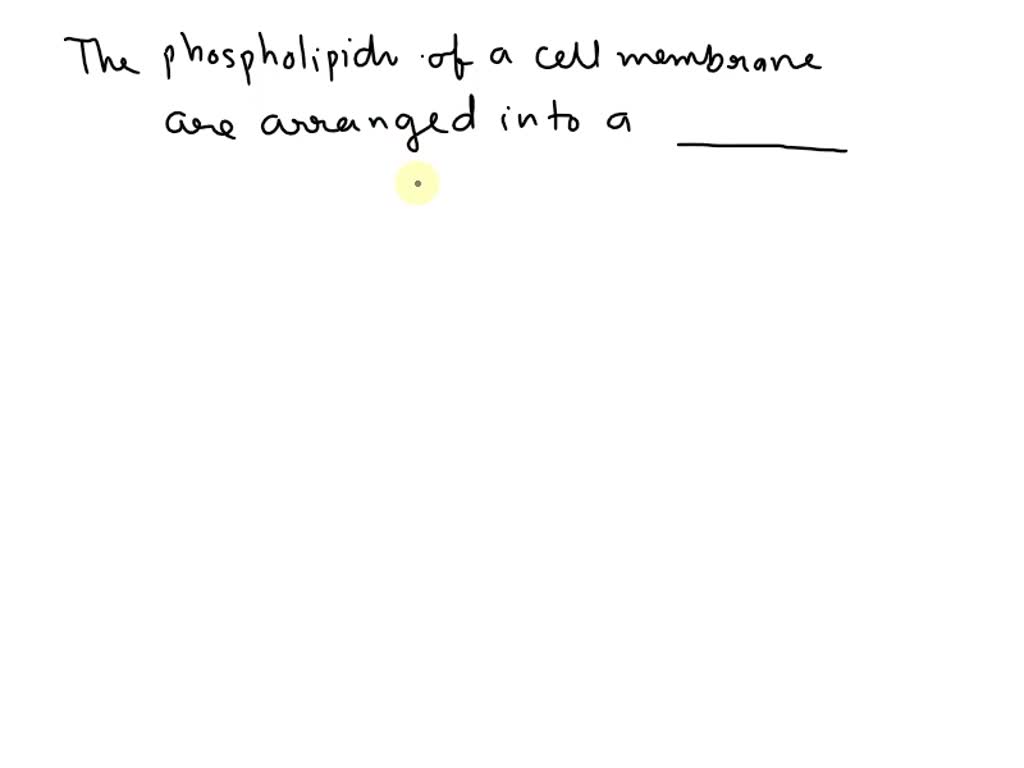 The phospholipids of a cell membrane
are arranged into a ______